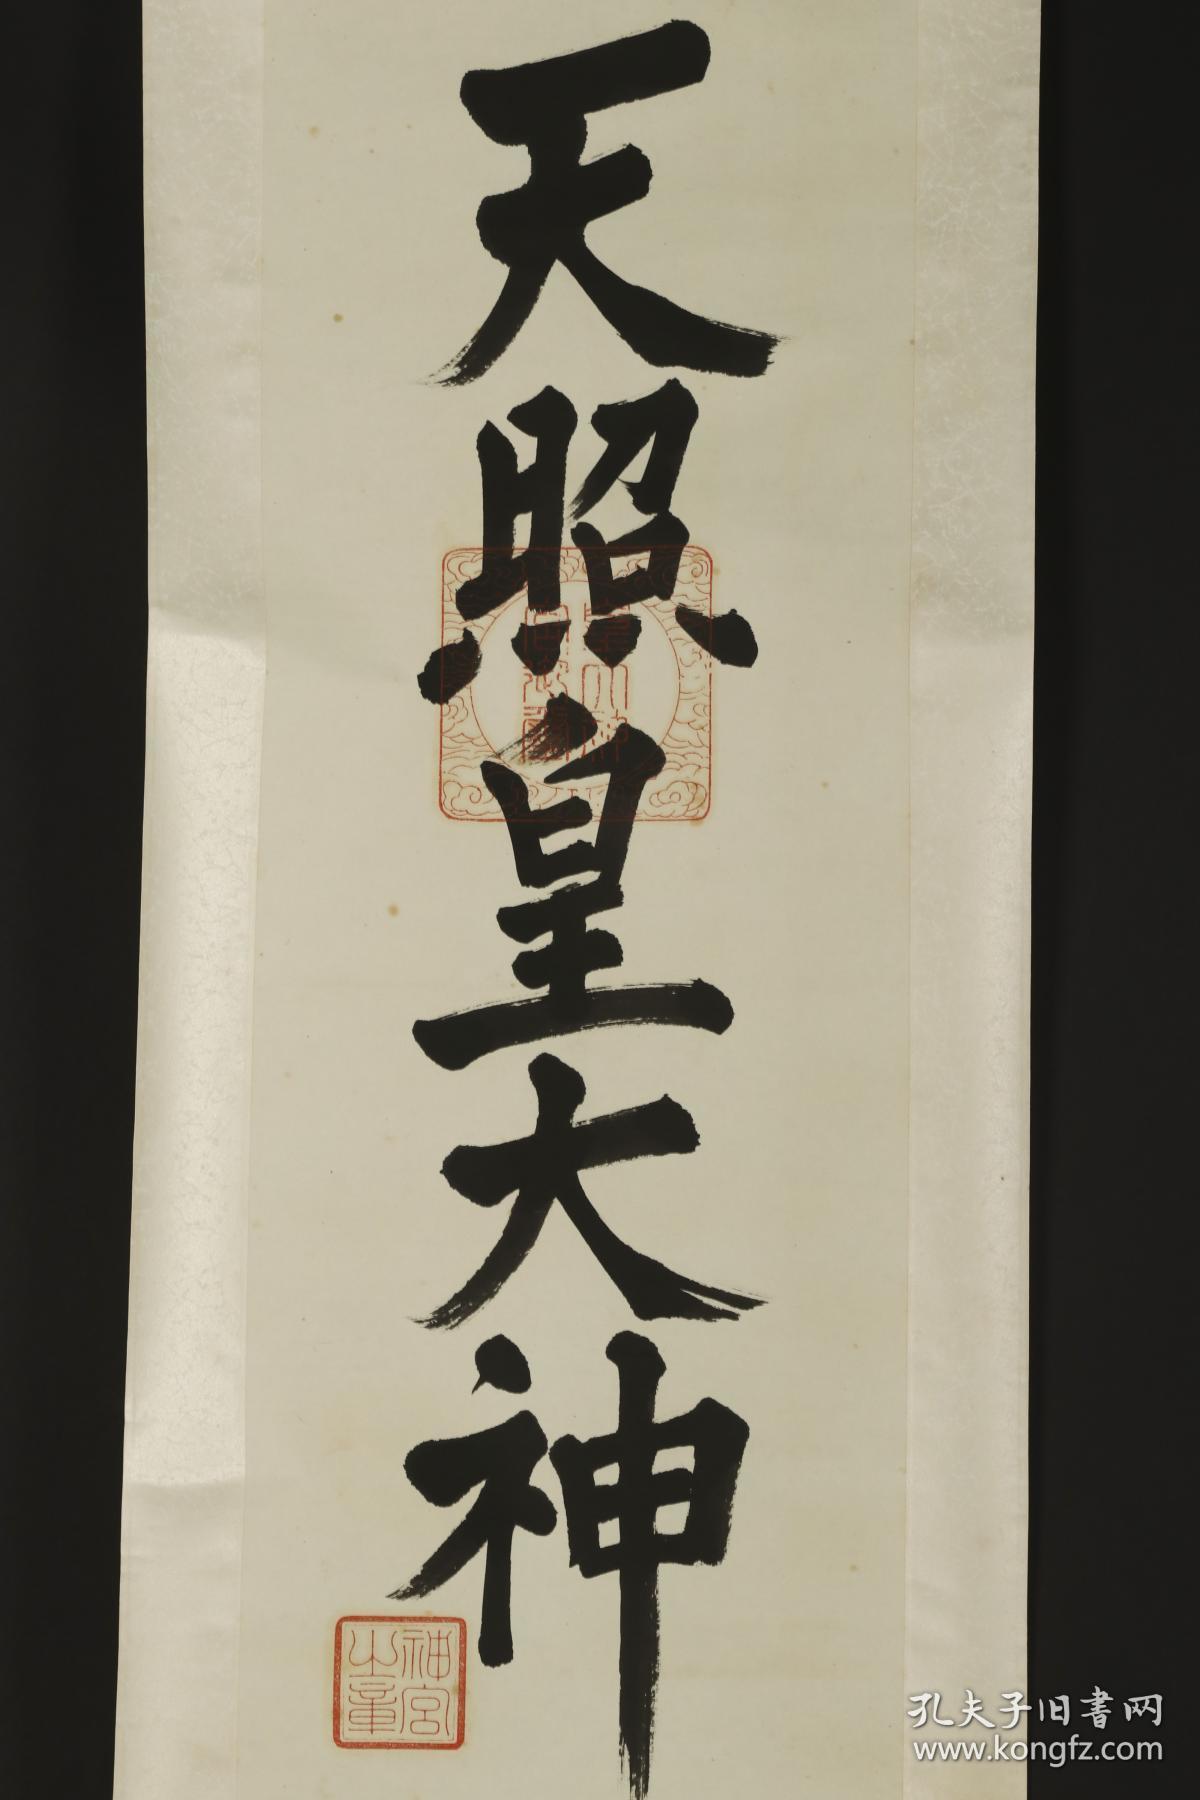 天照皇大神
神宮之章
孔夫子旧书网
www.kongfz.com